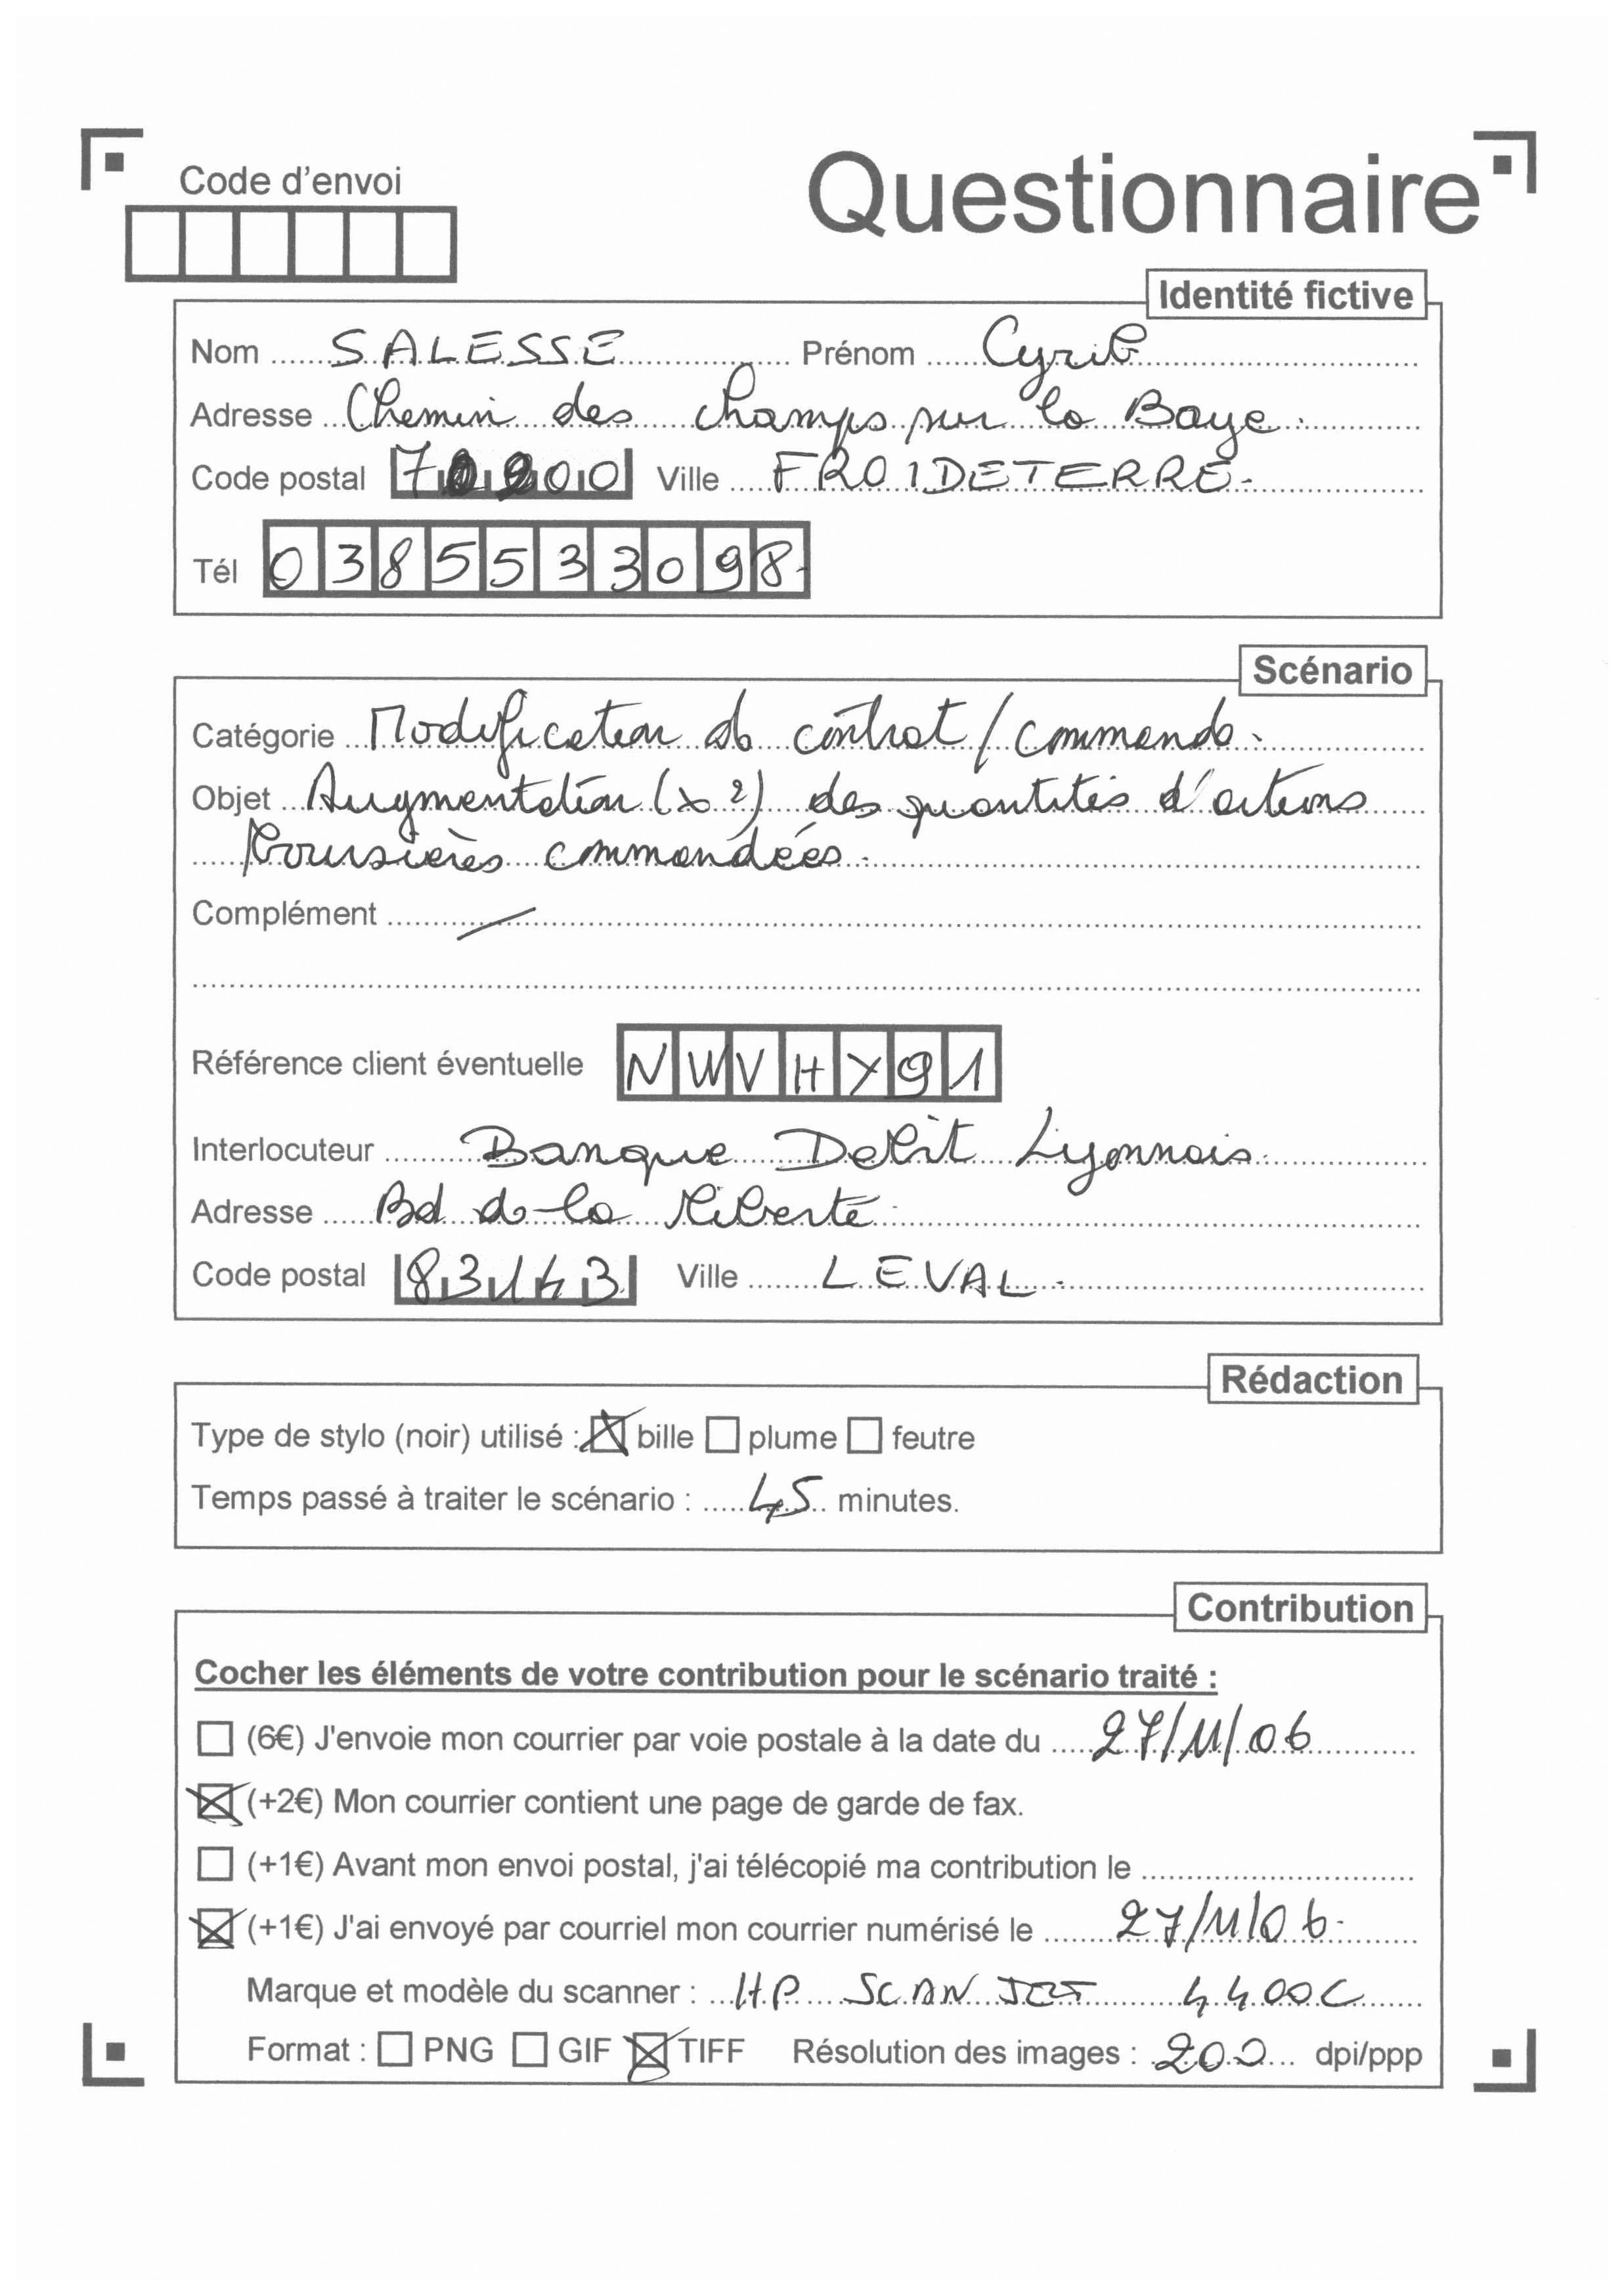 Code d'envoi
Questionnaire
Identité fictive
Nom SALESSE Prénom Cyril
Adresse Chemin des champs sur la Baye.
Code postal 70200 Ville FROIDETERRE.
Tél 0385533098
Scénario
Catégorie Modification de contrat/commande.
Objet Augmentation (x2) des quantités d'actions
boursières commandées.
Complément /
Référence client éventuelle NWVHY91
Interlocuteur Banque Debit Lyonnais.
Adresse Bd de la liberté.
Code postal 83143 Ville LEVAL.
Rédaction
Type de stylo (noir) utilisé : ☒ bille ☐ plume ☐ feutre
Temps passé à traiter le scénario : 45 minutes.
Contribution
Cocher les éléments de votre contribution pour le scénario traité :
☐ (6€) J'envoie mon courrier par voie postale à la date du 27/11/06
☒ (+2€) Mon courrier contient une page de garde de fax.
☐ (+1€) Avant mon envoi postal, j'ai télécopié ma contribution le
☒ (+1€) J'ai envoyé par courriel mon courrier numérisé le 27/11/06.
Marque et modèle du scanner : HP SCANJET 4400C
Format : ☐ PNG ☐ GIF ☒ TIFF Résolution des images : 200 dpi/ppp